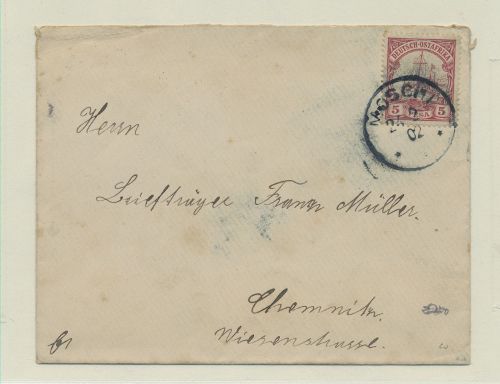 DEUTSCH-OSTAFRIKA
5 PESA 5
MOSCHI
Herrn
Briefträger Franz Müller.
Chemnitz.
Wiesenstrasse.